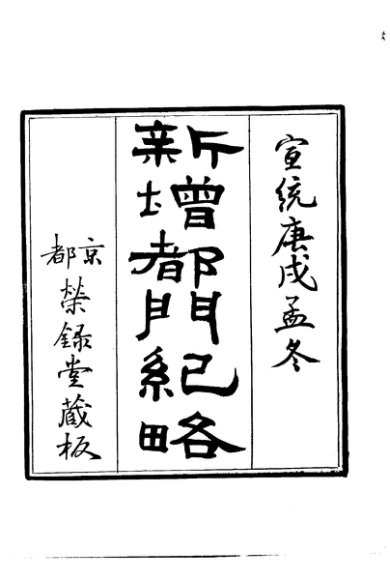 宣統庚戌孟冬
新增都門紀略
京都
榮錄堂藏板